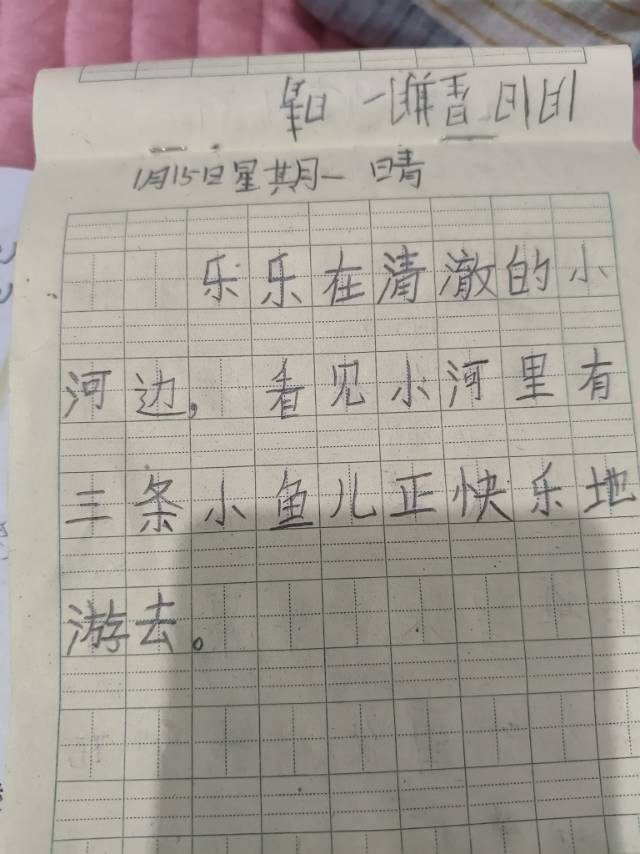 1月15日星期一 晴
乐乐在清澈的小
河边，看见小河里有
三条小鱼儿正快乐地
游去。